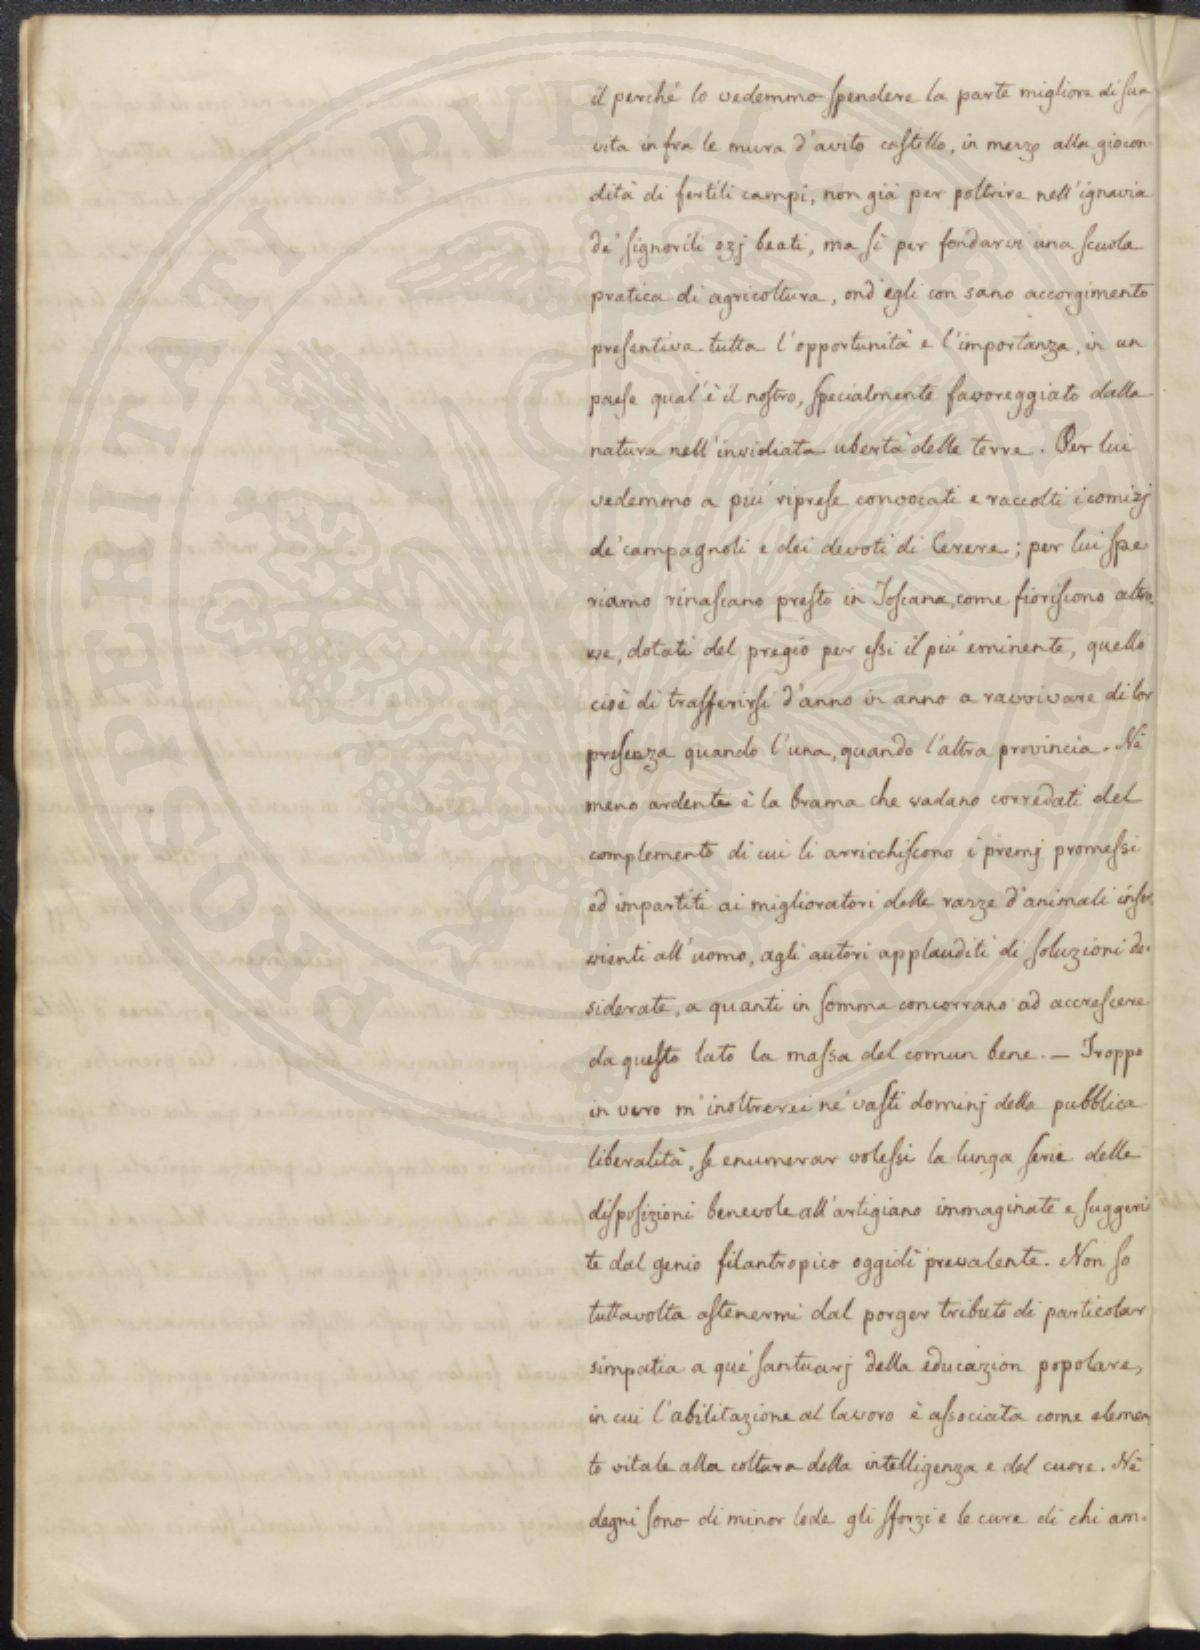 il perché lo vedemmo spendere la parte migliore di sua
vita in fra le mura d'avito castello, in mezzo alla giocon-
dità di fertili campi, non già per poltrire nell'ignavia
de' signorili ozj beati, ma sì per fondarvi una scuola
pratica di agricoltura, ond'egli con sano accorgimento
presentiva tutta l'opportunità e l'importanza, in un
paese qual'è il nostro, specialmente favoreggiato dalla
natura nell'invidiata ubertà delle terre. Per lui
vedemmo a più riprese convocati e raccolti i comizj
de' campagnoli e dei devoti di Cerere; per lui spe
riamo rinascano presto in Toscana, come fioriscono altro-
ve, dotati del pregio per essi il più eminente, quello
cioè di trasferirsi d'anno in anno a ravvivare di lor
presenza quando l'una, quando l'altra provincia. Nè
meno ardente è la brama che vadano corredati del
complemento di cui li arricchiscono i premj promessi
ed impartiti ai miglioratori delle razze d'animali inser-
vienti all'uomo, agli autori applauditi di soluzioni de-
siderate, a quanti in somma concorrano ad accrescere
da questo lato la massa del comun bene. — Troppo
in vero m'inoltrerei ne' vasti dominj della pubblica
liberalità, se enumerar volessi la lunga serie delle
disposizioni benevole all'artigiano immaginate e suggeri
te dal genio filantropico oggidì prevalente. Non so
tuttavolta astenermi dal porger tributo di particolar
simpatia a que' santuarj della educazion popolare,
in cui l'abilitazione al lavoro è associata come elemen
to vitale alla coltura della intelligenza e del cuore. Nè
degni sono di minor lode gli sforzi e le cure di chi am-
PROSPERITATI PUBLICAE